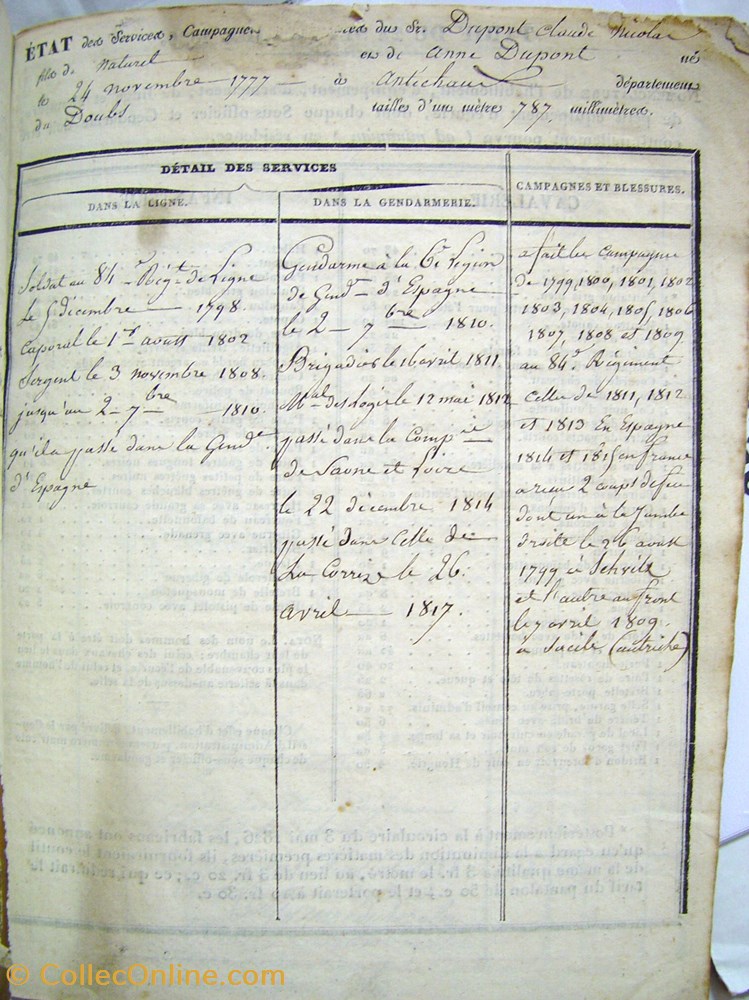 ÉTAT des Services, Campagnes du Sr. Dupont Claude Nicolas
fils de naturel et de Anne Dupont né
le 24 novembre 1777 à Antechaux département
du Doubs tailles d'un mètre 787 millimètres.
DÉTAIL DES SERVICES
DANS LA LIGNE.
Soldat au 84e Régt de Ligne
Le 5 décembre 1798.
Caporal le 1er aoust 1802
Sergent le 3 novembre 1808.
jusqu'au 2 7bre 1810.
qu'il a passé dans la Gendie
d'Espagne
DANS LA GENDARMERIE.
Gendarme à la 6e Légion
de Gendie d'Espagne
le 2 7bre 1810.
Brigadier le 16 avril 1811
Mal des logis le 12 mai 1812
passé dans la Compie
de Saone et Loire
le 22 décembre 1814
passé dans Celle de
La Correze le 26
avril 1817.
CAMPAGNES ET BLESSURES.
a fait les campagne
De 1799, 1800, 1801, 1802
1803, 1804, 1805, 1806
1807, 1808 et 1809
au 84e Régiment
Celles de 1811, 1812
et 1813 En Espagne
1814 et 1815 en france
a reçu 2 coups de feu
dont un à la Jambe
droite le 26 aoust
1799 à
et l'autre au front
le 7 avril 1809.
à Sacile (autriche)
© CollecOnline.com